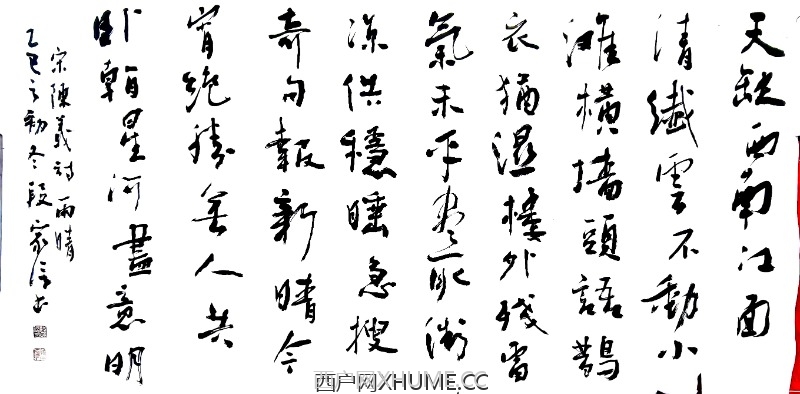 天缺西南江面
清纖雲不動小
灘橫墻頭語鵲
衣猶濕樓外殘雷
氣未平盡取微
涼供穩睡急搜
奇句報新晴今
宵絕勝無人共
卧看星河盡意明
宋陳義詩雨晴
乙巳之初冬段家書
西户网XHUME.CC